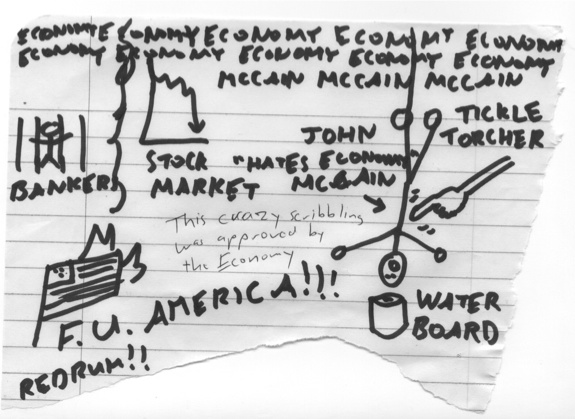 ECONOMY ECONOMY ECONOMY ECONOMY ECONOMY
ECONOMY ECONOMY ECONOMY ECONOMY ECONOMY
MCCAIN MCCAIN MCCAIN
TICKLE
TORCHER
JOHN
"HATES ECONOMY"
MCCAIN
BANKERS
STOCK
MARKET
This crazy scribbling
was approved by
the Economy
F.U. AMERICA!!!
REDRUM!!
WATER
BOARD